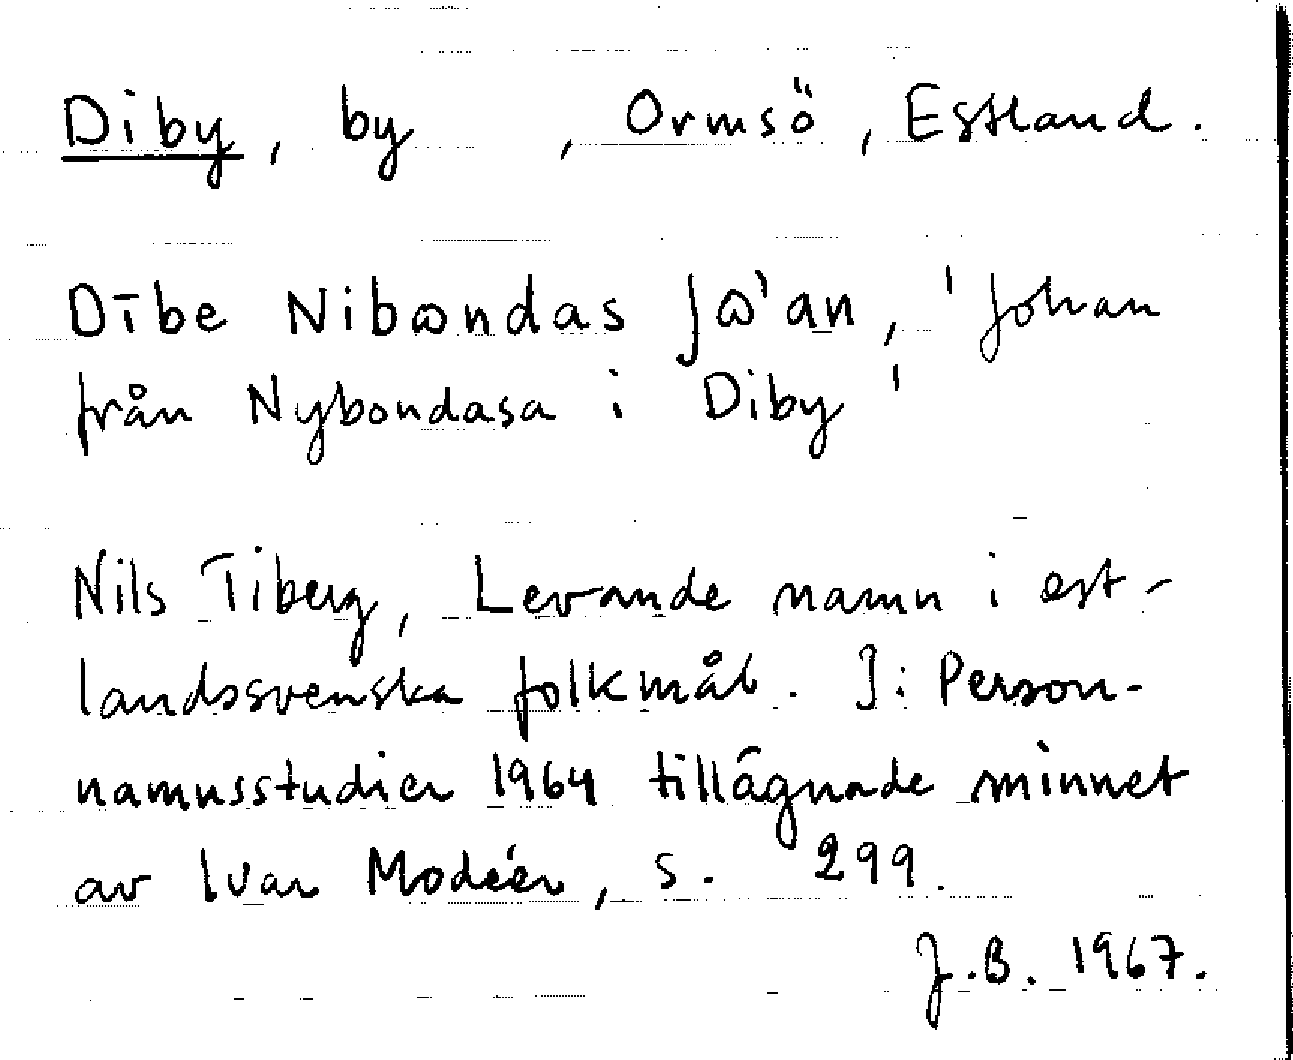 Diby, by , Ormsö, Estland.
Dībe Nibωndas Jω'an, 'Johan
från Nybondasa i Diby'
Nils Tiberg, Levande namn i est-
landssvenska folkmål. I: Person-
namnsstudier 1964 tillägnade minnet
av Ivar Modéer, s. 299.
J.B. 1967.